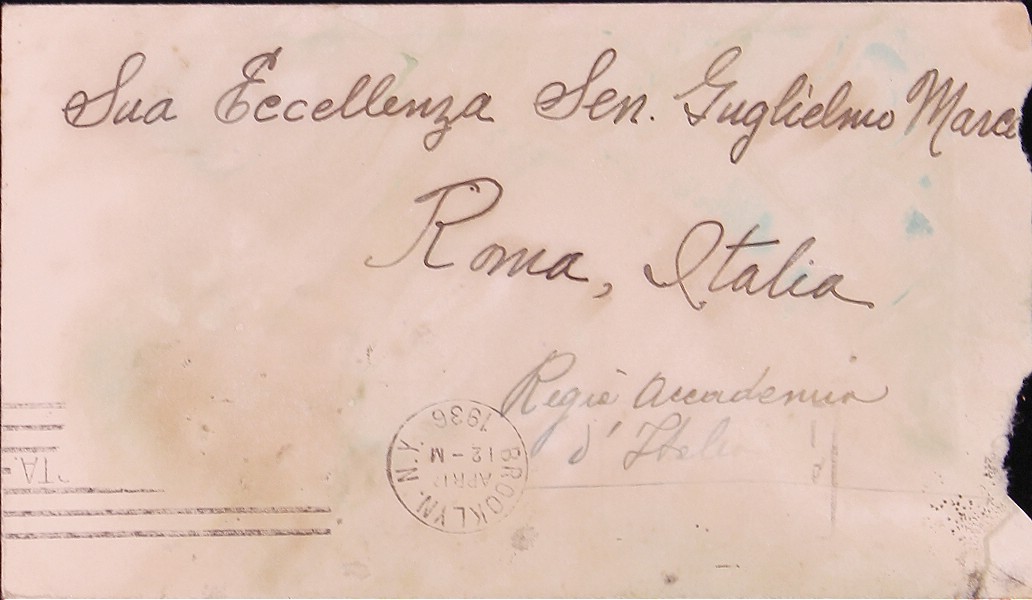 Sua Eccellenza Sen. Guglielmo Marco
Roma, Italia
Regia Accademia
d'Itali
BROOKLYN N.Y.
APR
12-M
1936
TA-